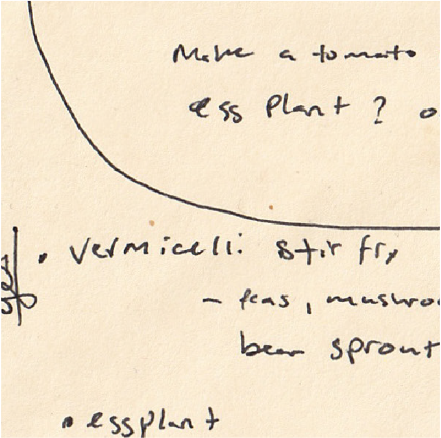 Make a tomato
egg plant ? o
yes
• vermicelli stir fry
– peas, mushroo
bean sprout
• eggplant